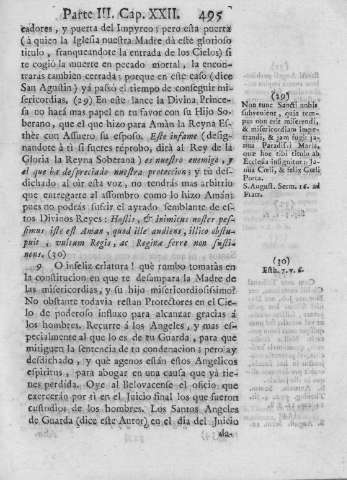 Parte III. Cap. XXII. 495
cadores, y puerta del Impyreo; pero esta puerta
(à quien la Iglesia nuestra Madre dà este glorioso
titulo, franqueandote la entrada de los Cielos) si
te cogiò la muerte en pecado mortal, la encon-
traràs tambien cerrada; porque en este caso (dice
San Agustin) yà passò el tiempo de conseguir mi-
sericordias. (29) En este lance la Divina Prince-
sa no harà mas papel en tu favor con su Hijo So-
berano, que el que hizo para Amàn la Reyna Es-
thèr con Assuero su esposo. Este infame (designa-
nandote à ti si fueres rèprobo, dirà al Rey de la
Gloria la Reyna Soberana) es nuestro enemigo, y
el que ha despreciado nuestra proteccion; y tu des-
dichado, al oìr esta voz, no tendràs mas arbitrio
que entregarte al assombro como lo hizo Amàn;
pues no podràs sufrir el ayrado semblante de es-
tos Divinos Reyes: Hostis, & inimicus noster pes-
simus iste est Aman, quod ille audiens, illico obstu-
puit, vultum Regis, ac Reginæ ferre non susti-
nens. (30)
9 O infeliz criatura! què rumbo tomaràs en
la constitucion en que te desampara la Madre de
las misericordias, y su hijo misericordiosissimo?
No obstante todavia restan Protectores en el Cie-
lo de poderoso influxo para alcanzar gracias à
los hombres. Recurre à los Angeles, y mas es-
pecialmente al que lo es de tu Guarda, para que
mitiguen la sentencia de tu condenacion; pero ay
desdichado, y què agenos estàn estos Angelicos
espiritus, para abogar en una causa que yà tie-
nes perdida. Oye al Belovacense el oficio que
exerceràn por ti en el Juicio final los que fueron
custodios de los hombres. Los Santos Angeles
de Guarda (dice este Autor) en el dia del Juicio
(29)
Non tunc Sancti nobis
subvenient, quia tem-
pus non erit miserendi,
& misericordiam impe-
trandi, & jam fugit ja-
nua Paradisi Maria,
quæ hoc tibi titulo ab
Ecclesia insignitur: Ja-
nua Cœli, & felix Cœli
Porta.
S. August. Serm. 16. ad
Fratr.
(30)
Esth. 7. v. 6.